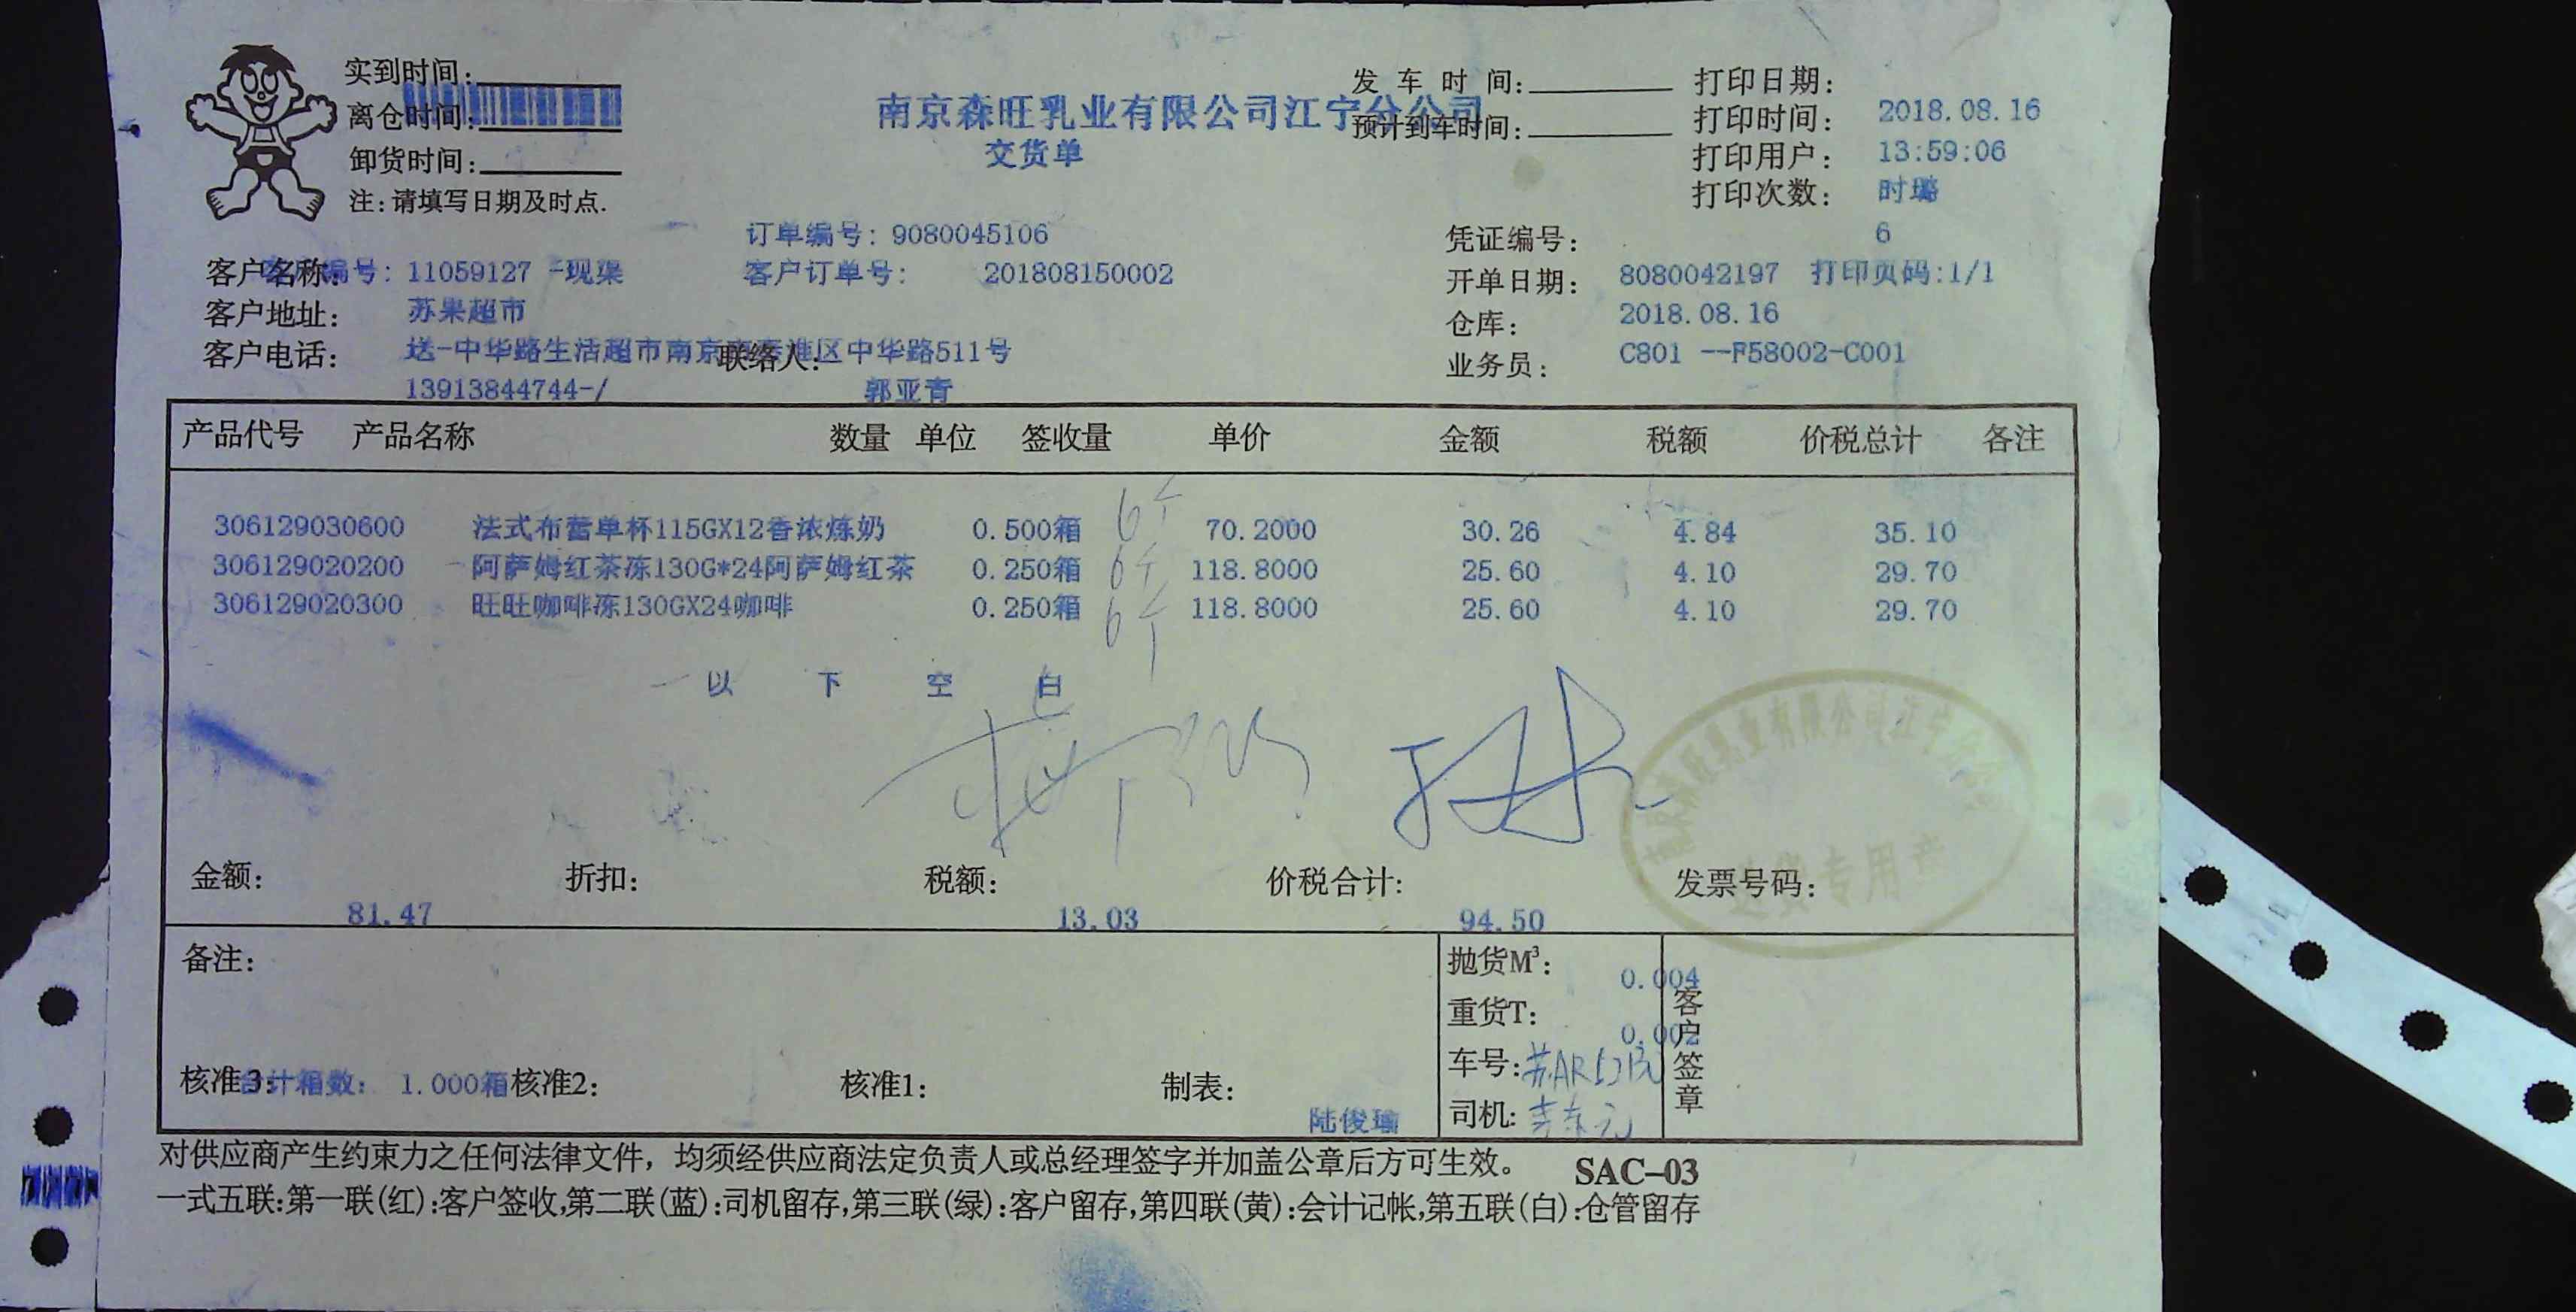 实到时间:
离仓时间:
卸货时间:
注:请填写日期及时点.
南京森旺乳业有限公司江宁分公司
交货单
发车时间:
预计到车时间:
打印日期:
打印时间: 2018.08.16
打印用户: 13:59:06
打印次数: 时璐
订单编号: 9080045106
凭证编号: 6
客户名称: 编号: 11059127 -现渠 客户订单号: 201808150002
开单日期: 8080042197 打印页码:1/1
客户地址: 苏果超市
仓库: 2018.08.16
客户电话: 送-中华路生活超市南京 淮区中华路511号
联络人:
业务员: C801 --F58002-C001
13913844744-/ 郭亚青
产品代号 产品名称 数量 单位 签收量 单价 金额 税额 价税总计 各注
306129030600 法式布蕾单杯115GX12香浓炼奶 0.500箱 6个 70.2000 30.26 4.84 35.10
306129020200 阿萨姆红茶冻130G*24阿萨姆红茶 0.250箱 6个 118.8000 25.60 4.10 29.70
306129020300 旺旺咖啡冻130GX24咖啡 0.250箱 6个 118.8000 25.60 4.10 29.70
以 下 空 白
金额: 折扣: 税额: 价税合计: 发票号码:
81.47 13.03 94.50
专用章
备注:
抛货M³: 0.004
重货T: 0.002
车号:
司机:
客户签章
核准3: 合计箱数: 1.000箱 核准2: 核准1: 制表:
陆俊瑜
对供应商产生约束力之任何法律文件，均须经供应商法定负责人或总经理签字并加盖公章后方可生效。 SAC-03
一式五联:第一联(红):客户签收,第二联(蓝):司机留存,第三联(绿):客户留存,第四联(黄):会计记帐,第五联(白):仓管留存